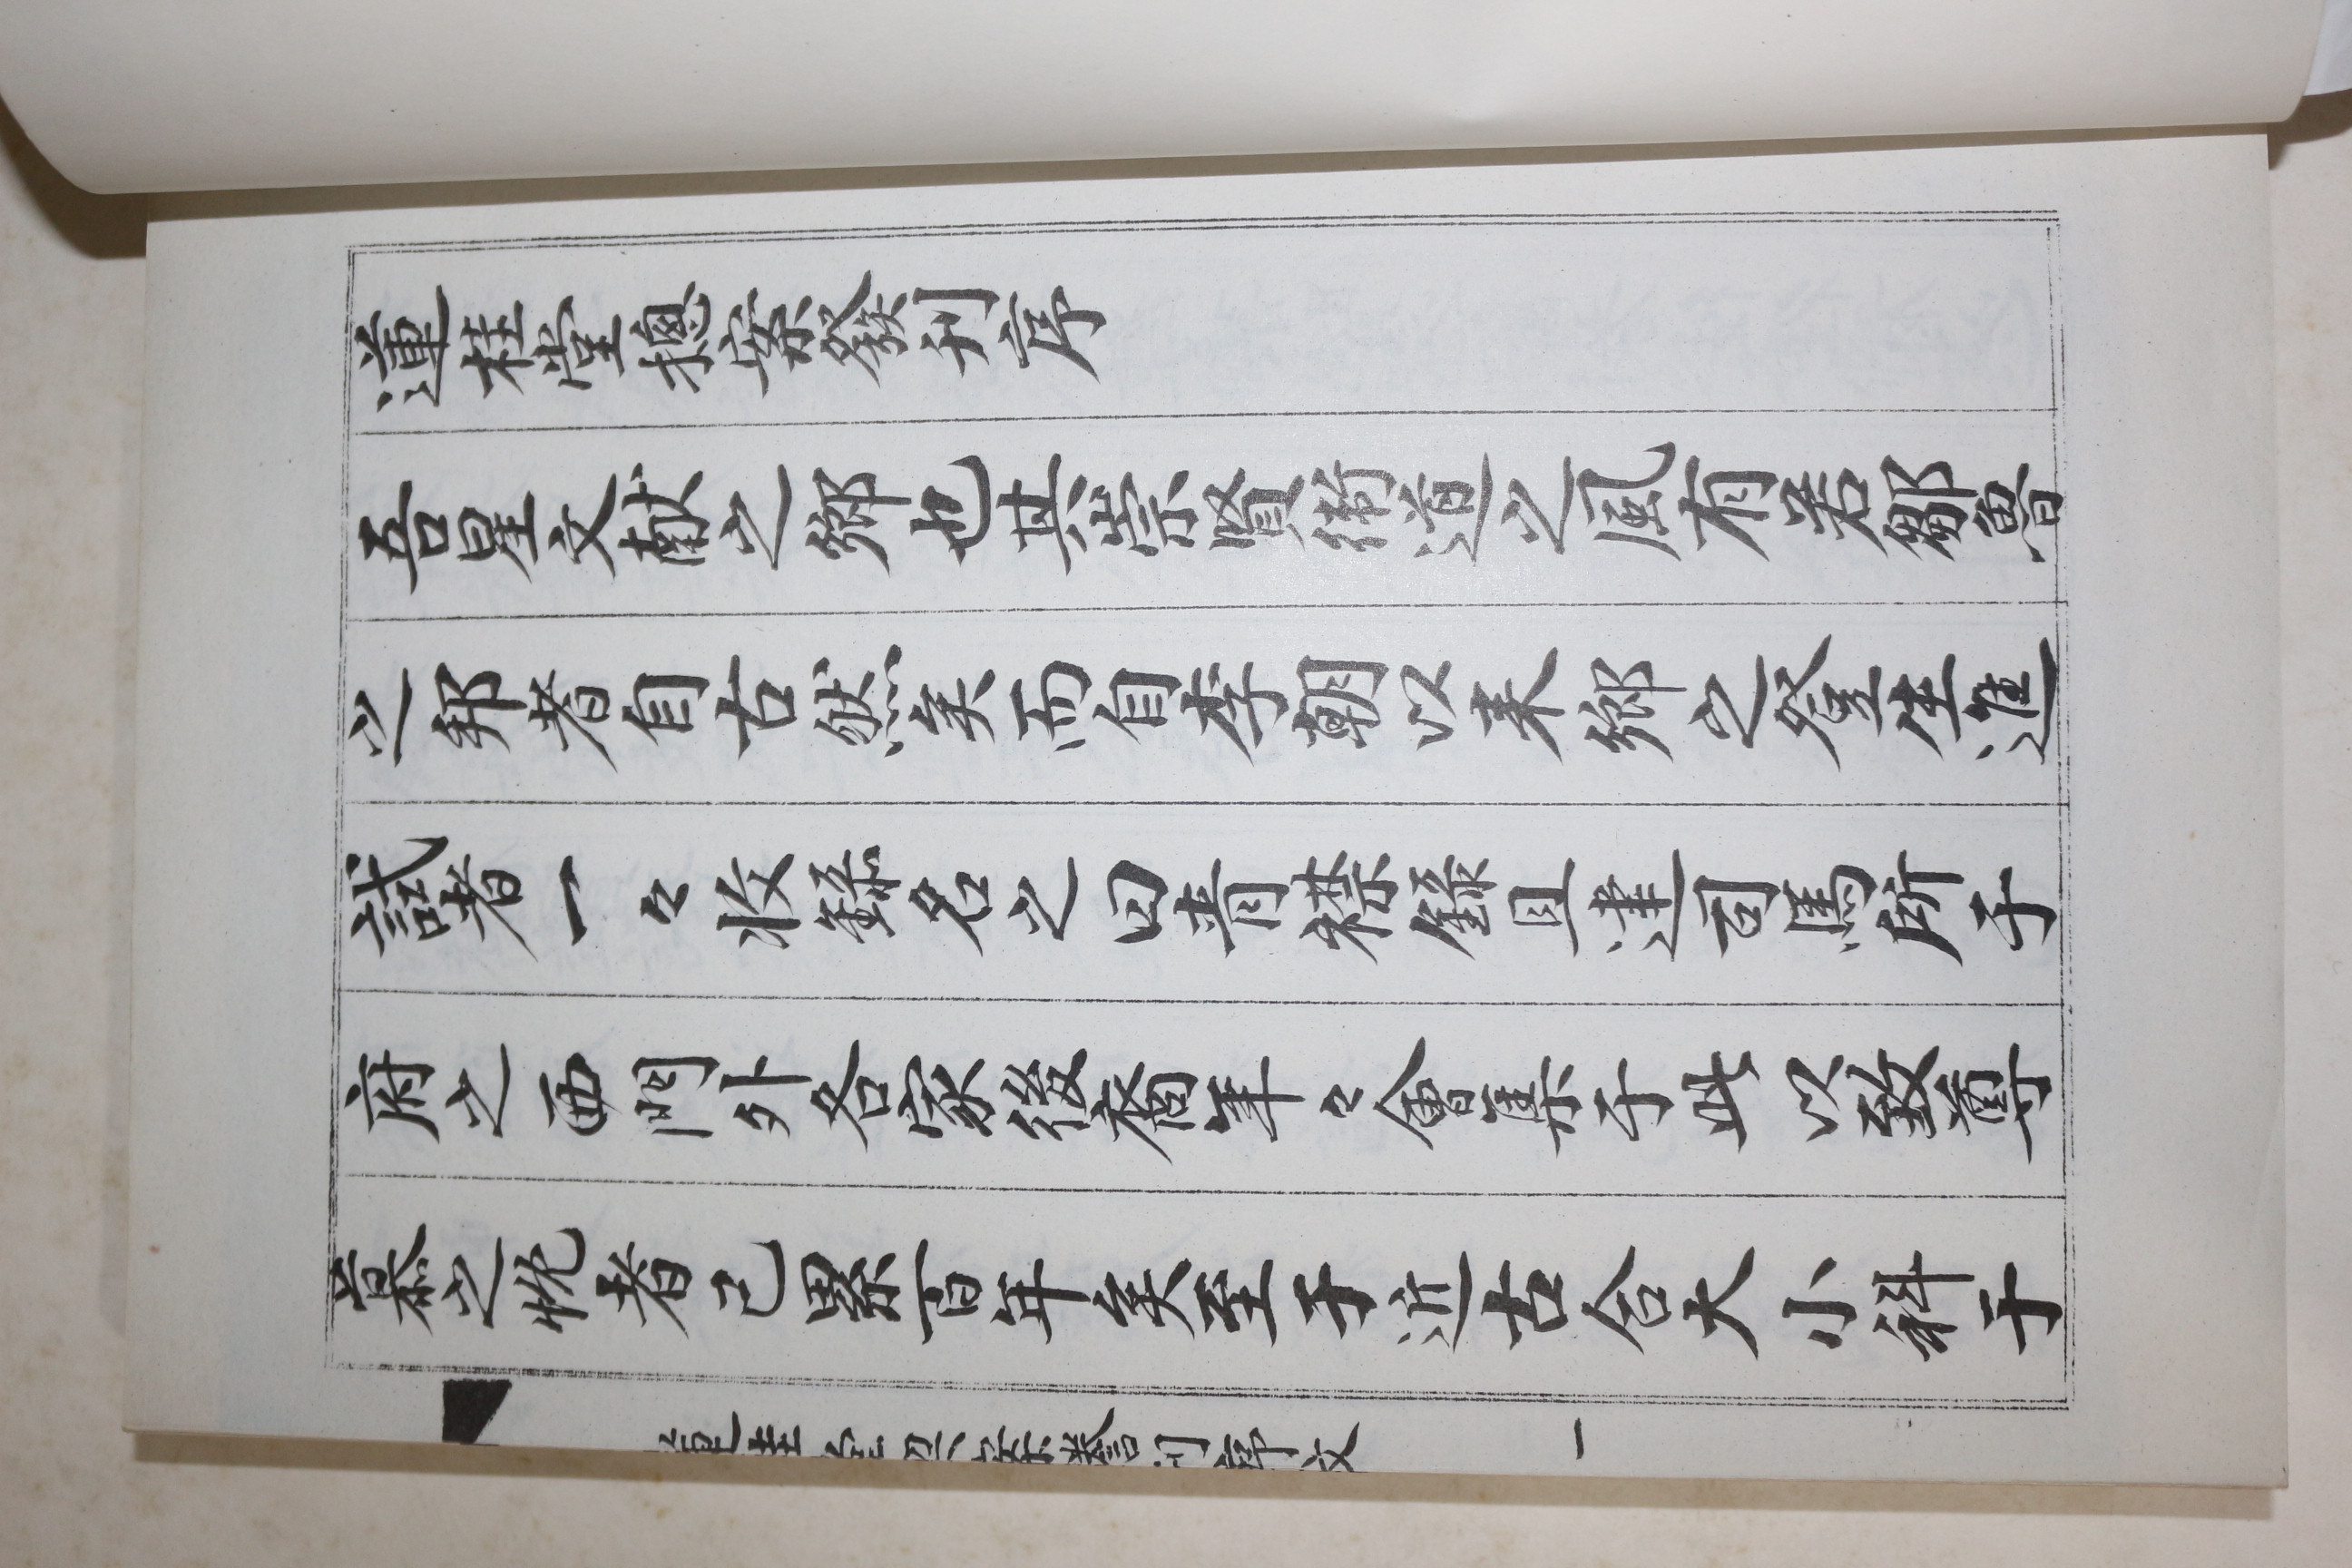 蓮桂堂摠案發刊序
吾星文献之鄉也其崇賢衛道之風有若鄒魯
之邦者自古然矣而自李朝以来鄉之登生進
試者一々收錄名之曰青襟錄且建司馬所于
府之西門外各家後裔年々會集于此以致尊
慕之忱者已累百年矣至于近古合大小科于
蓮桂堂契案謄刊序文
一